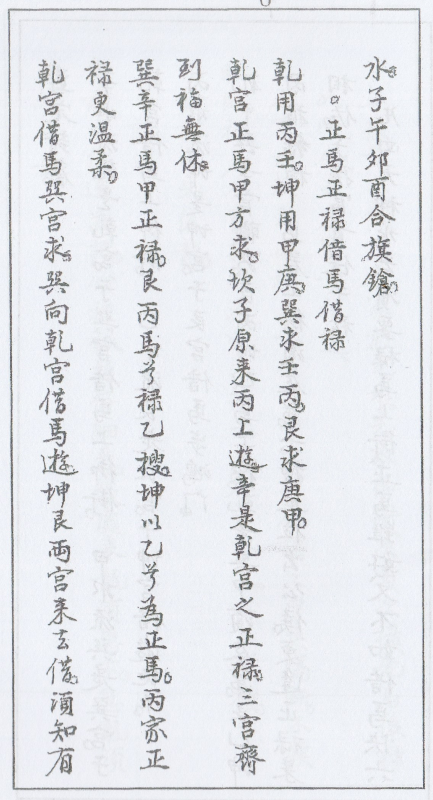 水。子午夘酉合旗鎗。
。正馬正禄借馬借禄
乾用丙壬。坤用甲庚。巽求壬丙。艮求庚甲。
乾宫正馬甲方求。坎子原来丙上遊。辛是乾宫之正禄。三宫齊
到福無休。
巽辛正馬甲正禄。艮丙馬兮禄乙搜。坤以乙兮為正馬。丙家正
禄更温柔。
乾宫借馬巽宫求。巽向乾宫借馬遊。坤艮両宫来去借。須知有